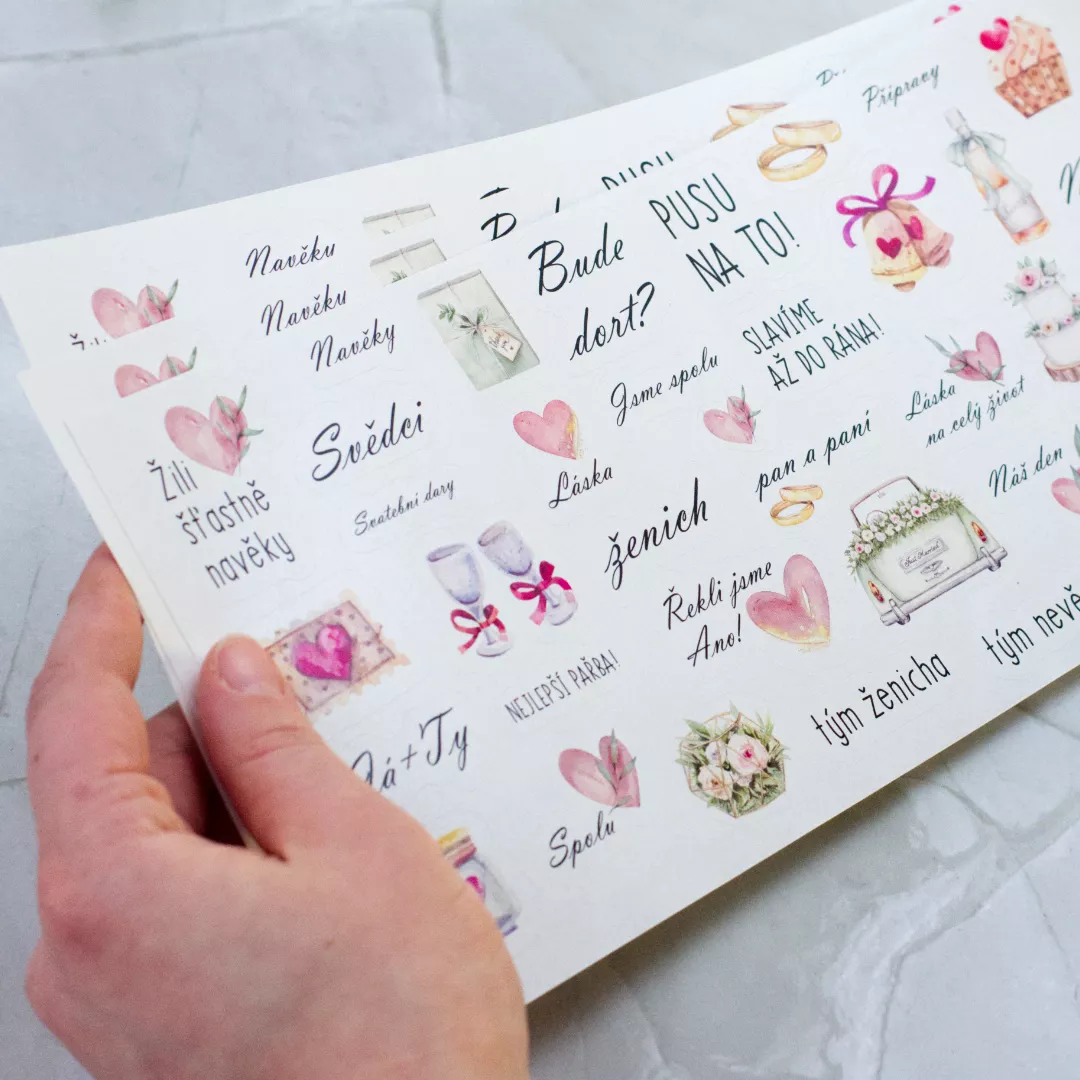 Přípravy
Navěku
Navěku
Navěky
Bude
dort?
PUSU
NA TO!
SLAVÍME
AŽ DO RÁNA!
Jsme spolu
Láska
na celý život
Žili
šťastně
navěky
Svědci
Svatební dary
Láska
pan a paní
Náš den
ženich
Řekli jsme
Ano!
Just Married
NEJLEPŠÍ PAŘBA!
tým ženicha
tým nevě
Já+Ty
Spolu